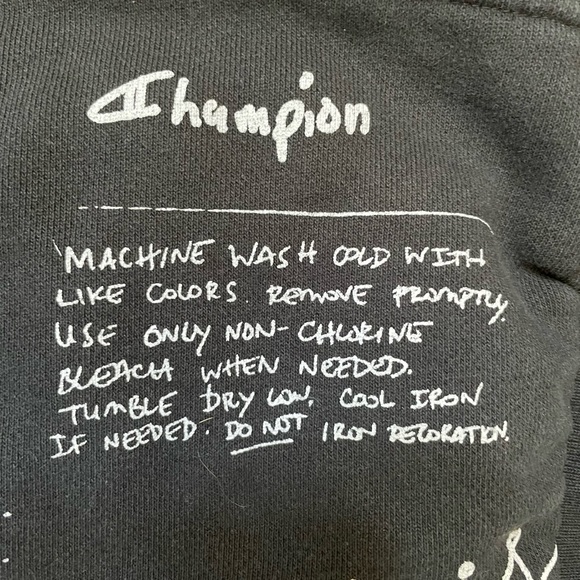 Champion
MACHINE WASH COLD WITH
LIKE COLORS. REMOVE PROMPTLY.
USE ONLY NON-CHLORINE
BLEACH WHEN NEEDED.
TUMBLE DRY LOW. COOL IRON
IF NEEDED. DO NOT IRON DECORATION.